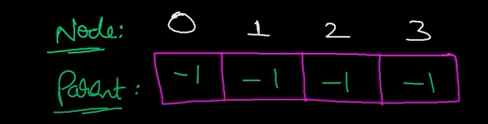 Node: 0 1 2 3
Parent: -1 -1 -1 -1